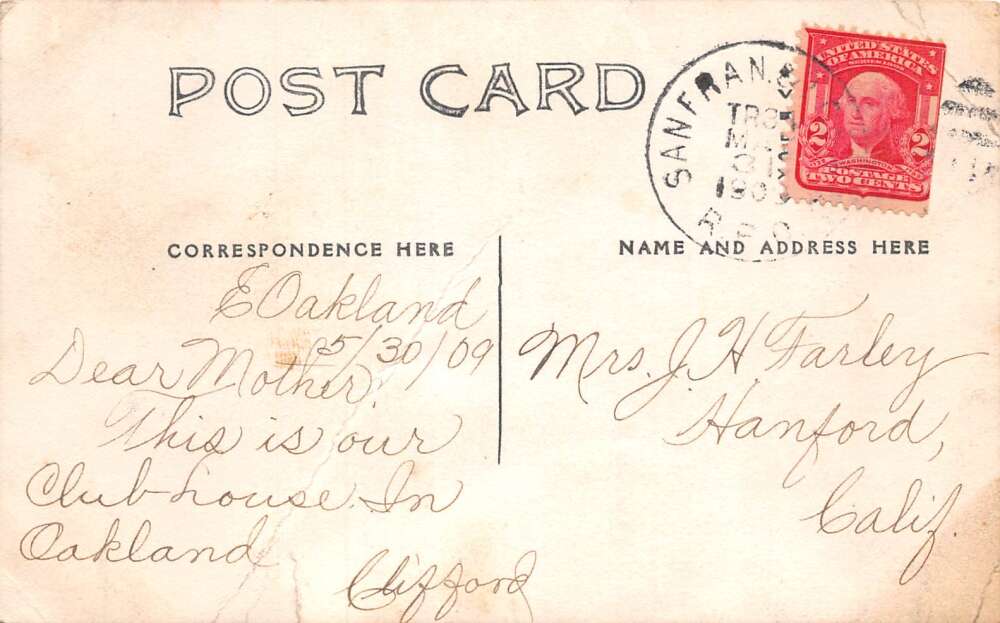 POST CARD
SAN FRAN. &
TR 8
MAY
31
1909
R.P.O.
UNITED STATES
OF AMERICA
2 2
WASHINGTON
POSTAGE
TWO CENTS
CORRESPONDENCE HERE
NAME AND ADDRESS HERE
E Oakland
5/30/09
Dear Mother.
This is our
Club-house. In
Oakland
Clifford
Mrs. J. H Farley
Hanford,
Calif.